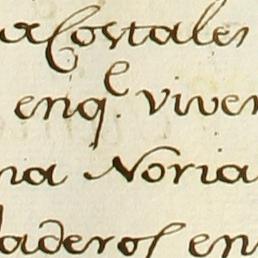 a Costales
enq.e viven
nia Noria
laderos en